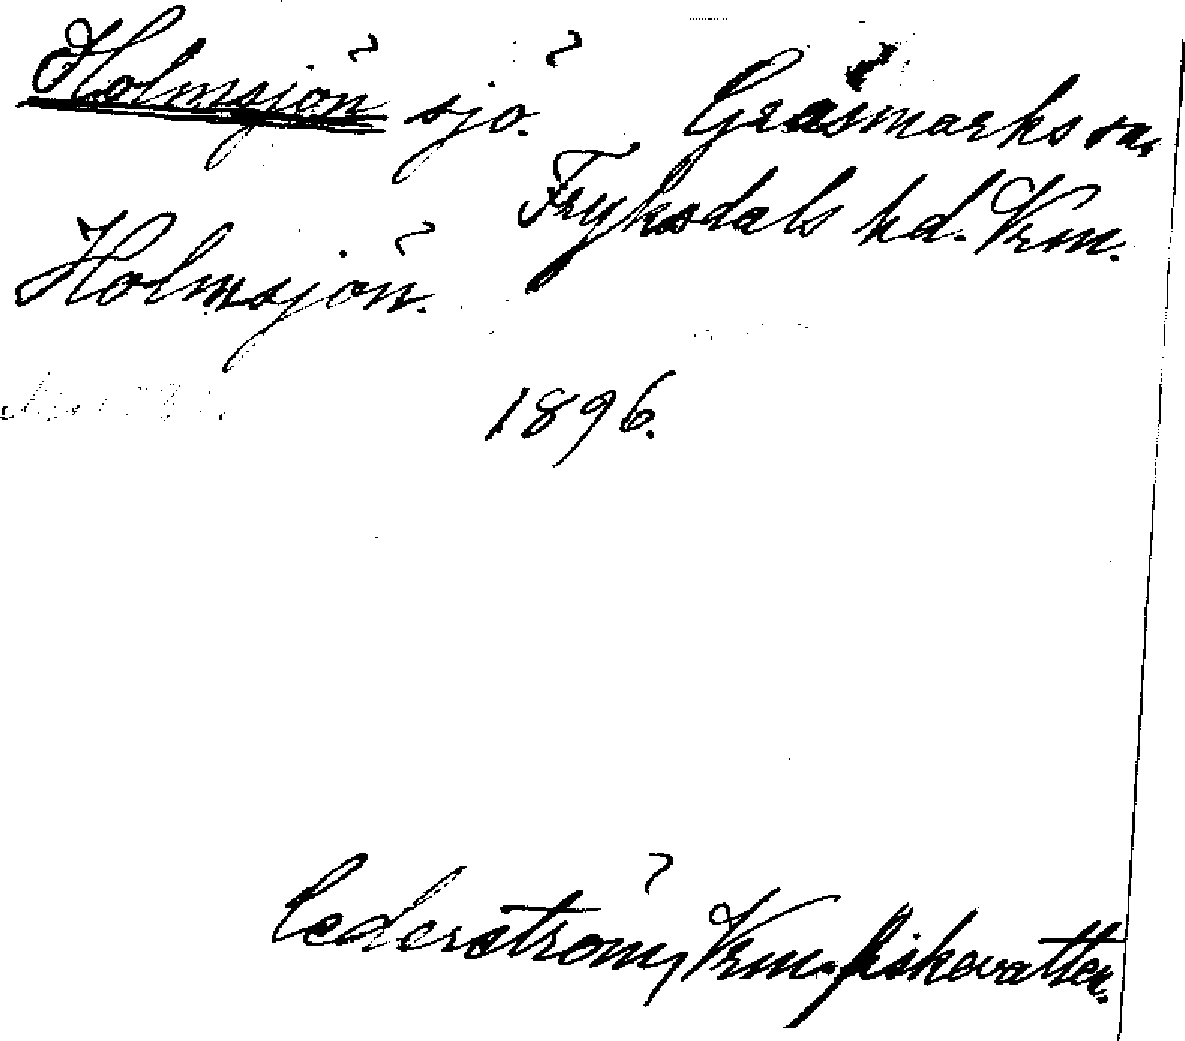 Holmsjön sjö. Gräsmarks sn,
Fryksdals hd. Vrm.
Holmsjön.
1896.
Cederström, Vrm. fiskevatten.